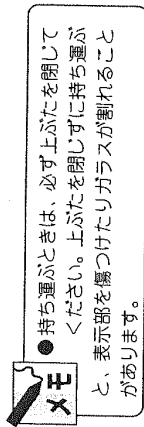 メモ
●持ち運ぶときは、必ず上ぶたを閉じて
ください。上ぶたを閉じずに持ち運ぶ
と、表示部を傷つけたりガラスが割れること
があります。